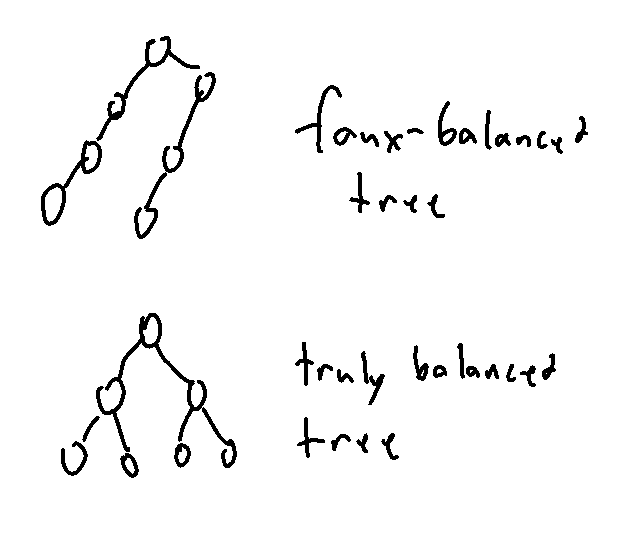 faux-balanced
tree
truly balanced
tree